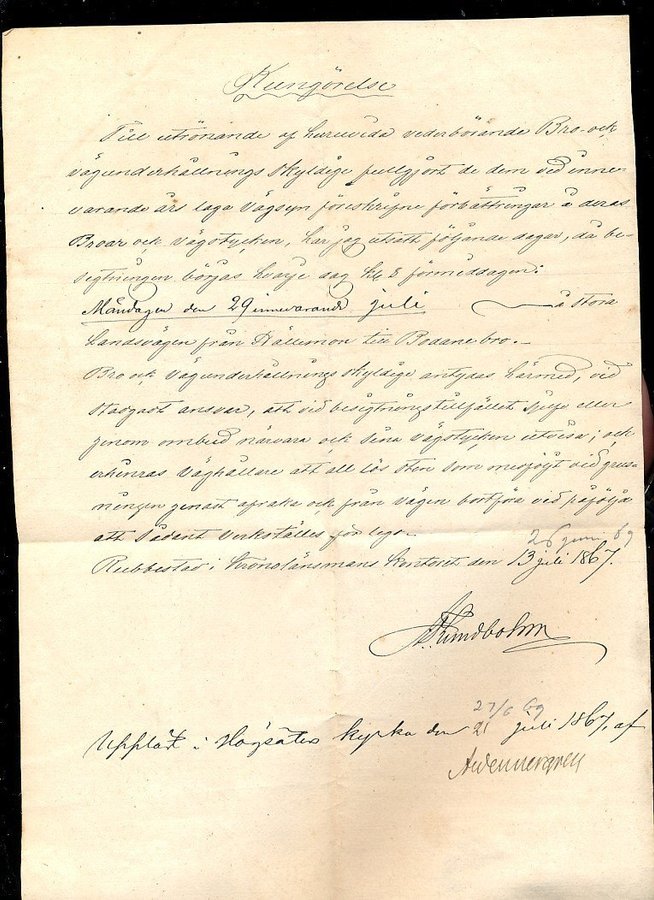 Kungörelse
Till utrönande af huruvida vederbörande Bro- och
vägunderhållnings skyldige fullgjort de dem vid inne
varande års laga Vägsyn föreskrifne förbättringar å deras
Broar och Vägstycken, har jag utsatt följande dagar, då be-
sigtningen börjas hvarje dag kl 8 förmiddagen:
Måndagen den 29 innevarande juli å stora
Landsvägen från till Bodane bro.
Bro och Vägunderhållnings skyldige antydas härmed, vid
stadgadt ansvar, att vid besigtningstillfället sjelfve eller
genom ombud närvara och sina Vägstycken utvisa; och
erhinras Väghållare att all lös sten som medföljt vid grus-
ningen genast afraka och från vägen bortföra vid påföljd
att sådant verkställes för lega.
26 juni 69
Rubbestad i Kronolänsmans kontoret den 13 juli 1867.
Lundbohm
27/6 69
Uppläst i Högsäters kyrka den 21 juli 1867, af